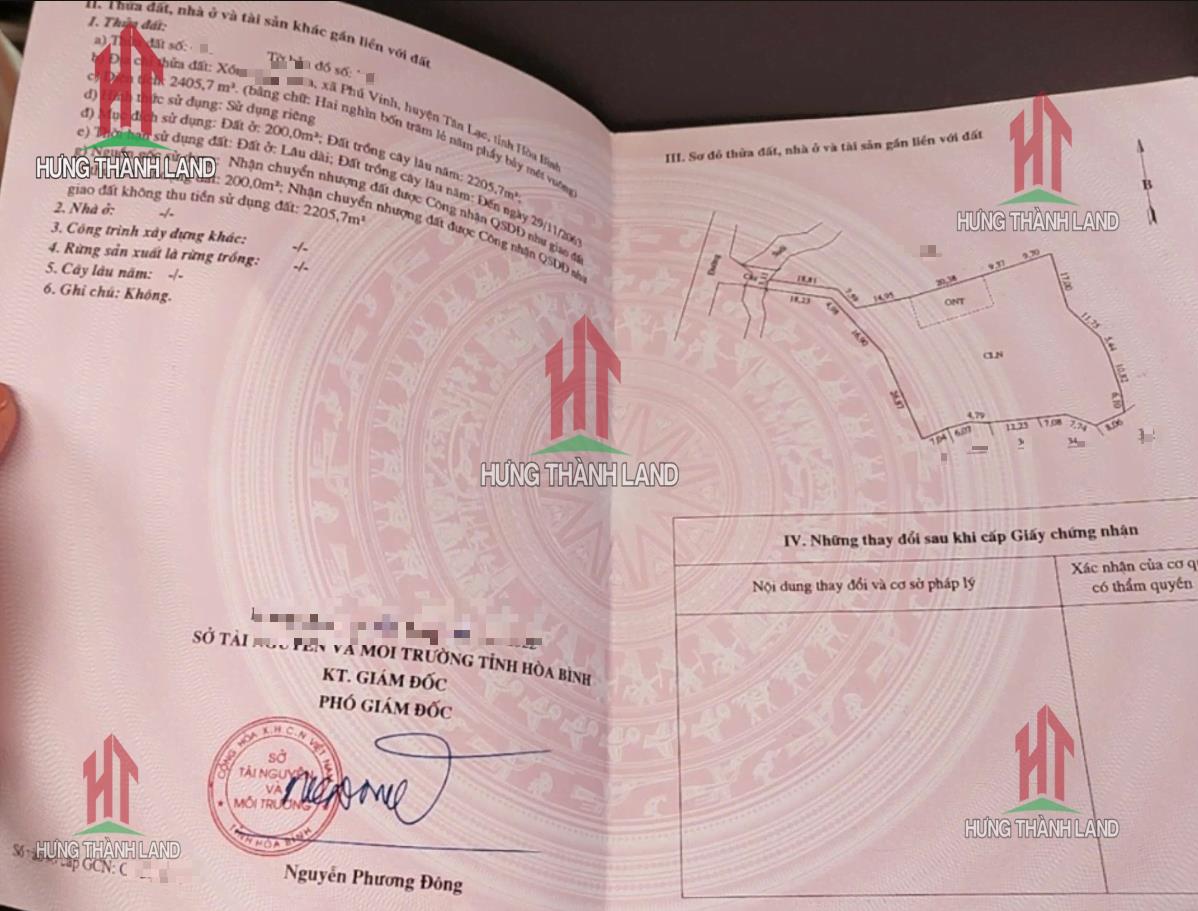 II. Thửa đất, nhà ở và tài sản khác gắn liền với đất
1. Thửa đất:
a) Thửa đất số: Tờ bản đồ số:
b) Địa chỉ thửa đất: Xóm xã Phú Vinh, huyện Tân Lạc, tỉnh Hòa Bình
c) Diện tích: 2405,7 m². (bằng chữ: Hai nghìn bốn trăm lẻ năm phẩy bảy mét vuông)
d) Hình thức sử dụng: Sử dụng riêng
đ) Mục đích sử dụng: Đất ở: 200,0m²; Đất trồng cây lâu năm: 2205,7m².
e) Thời hạn sử dụng đất: Đất ở: Lâu dài; Đất trồng cây lâu năm: Đến ngày 29/11/2063
g) Nguồn gốc sử dụng: Nhận chuyển nhượng đất được Công nhận QSDĐ như giao đất
đất: 200,0m²; Nhận chuyển nhượng đất được Công nhận QSDĐ như
giao đất không thu tiền sử dụng đất: 2205,7m²
2. Nhà ở: -/-
3. Công trình xây dựng khác: -/-
4. Rừng sản xuất là rừng trồng: -/-
5. Cây lâu năm: -/-
6. Ghi chú: Không.
SỞ TÀI NGUYÊN VÀ MÔI TRƯỜNG TỈNH HÒA BÌNH
KT. GIÁM ĐỐC
PHÓ GIÁM ĐỐC
CỘNG HÒA X.H.C.N VIỆT NAM
SỞ
TÀI NGUYÊN
VÀ
MÔI TRƯỜNG
TỈNH HÒA BÌNH
Nguyễn Phương Đông
cấp GCN: C
III. Sơ đồ thửa đất, nhà ở và tài sản gắn liền với đất
B
Đường
Suối
Cầu
18,81
18,23
7,49
4,98
14,95
20,38
9,37
9,70
17,00
11,75
5,44
10,82
6,10
8,06
7,74
7,08
12,25
4,79
6,07
7,04
26,87
16,90
ONT
CLN
IV. Những thay đổi sau khi cấp Giấy chứng nhận
Nội dung thay đổi và cơ sở pháp lý
Xác nhận của cơ qu
có thẩm quyền
HT
HƯNG THÀNH LAND
HT
HƯNG THÀNH LAND
HT
HƯNG THÀNH LAND
HT
HƯNG THÀNH LAND
HT
HƯNG THÀNH LAND